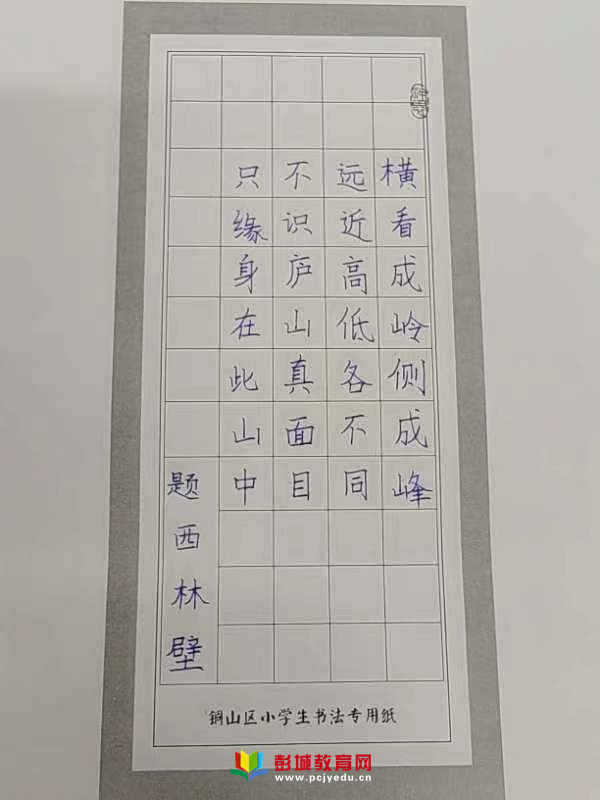 横看成岭侧成峰
远近高低各不同
不识庐山真面目
只缘身在此山中
题西林壁
铜山区小学生书法专用纸
彭城教育网
www.pcjyedu.cn